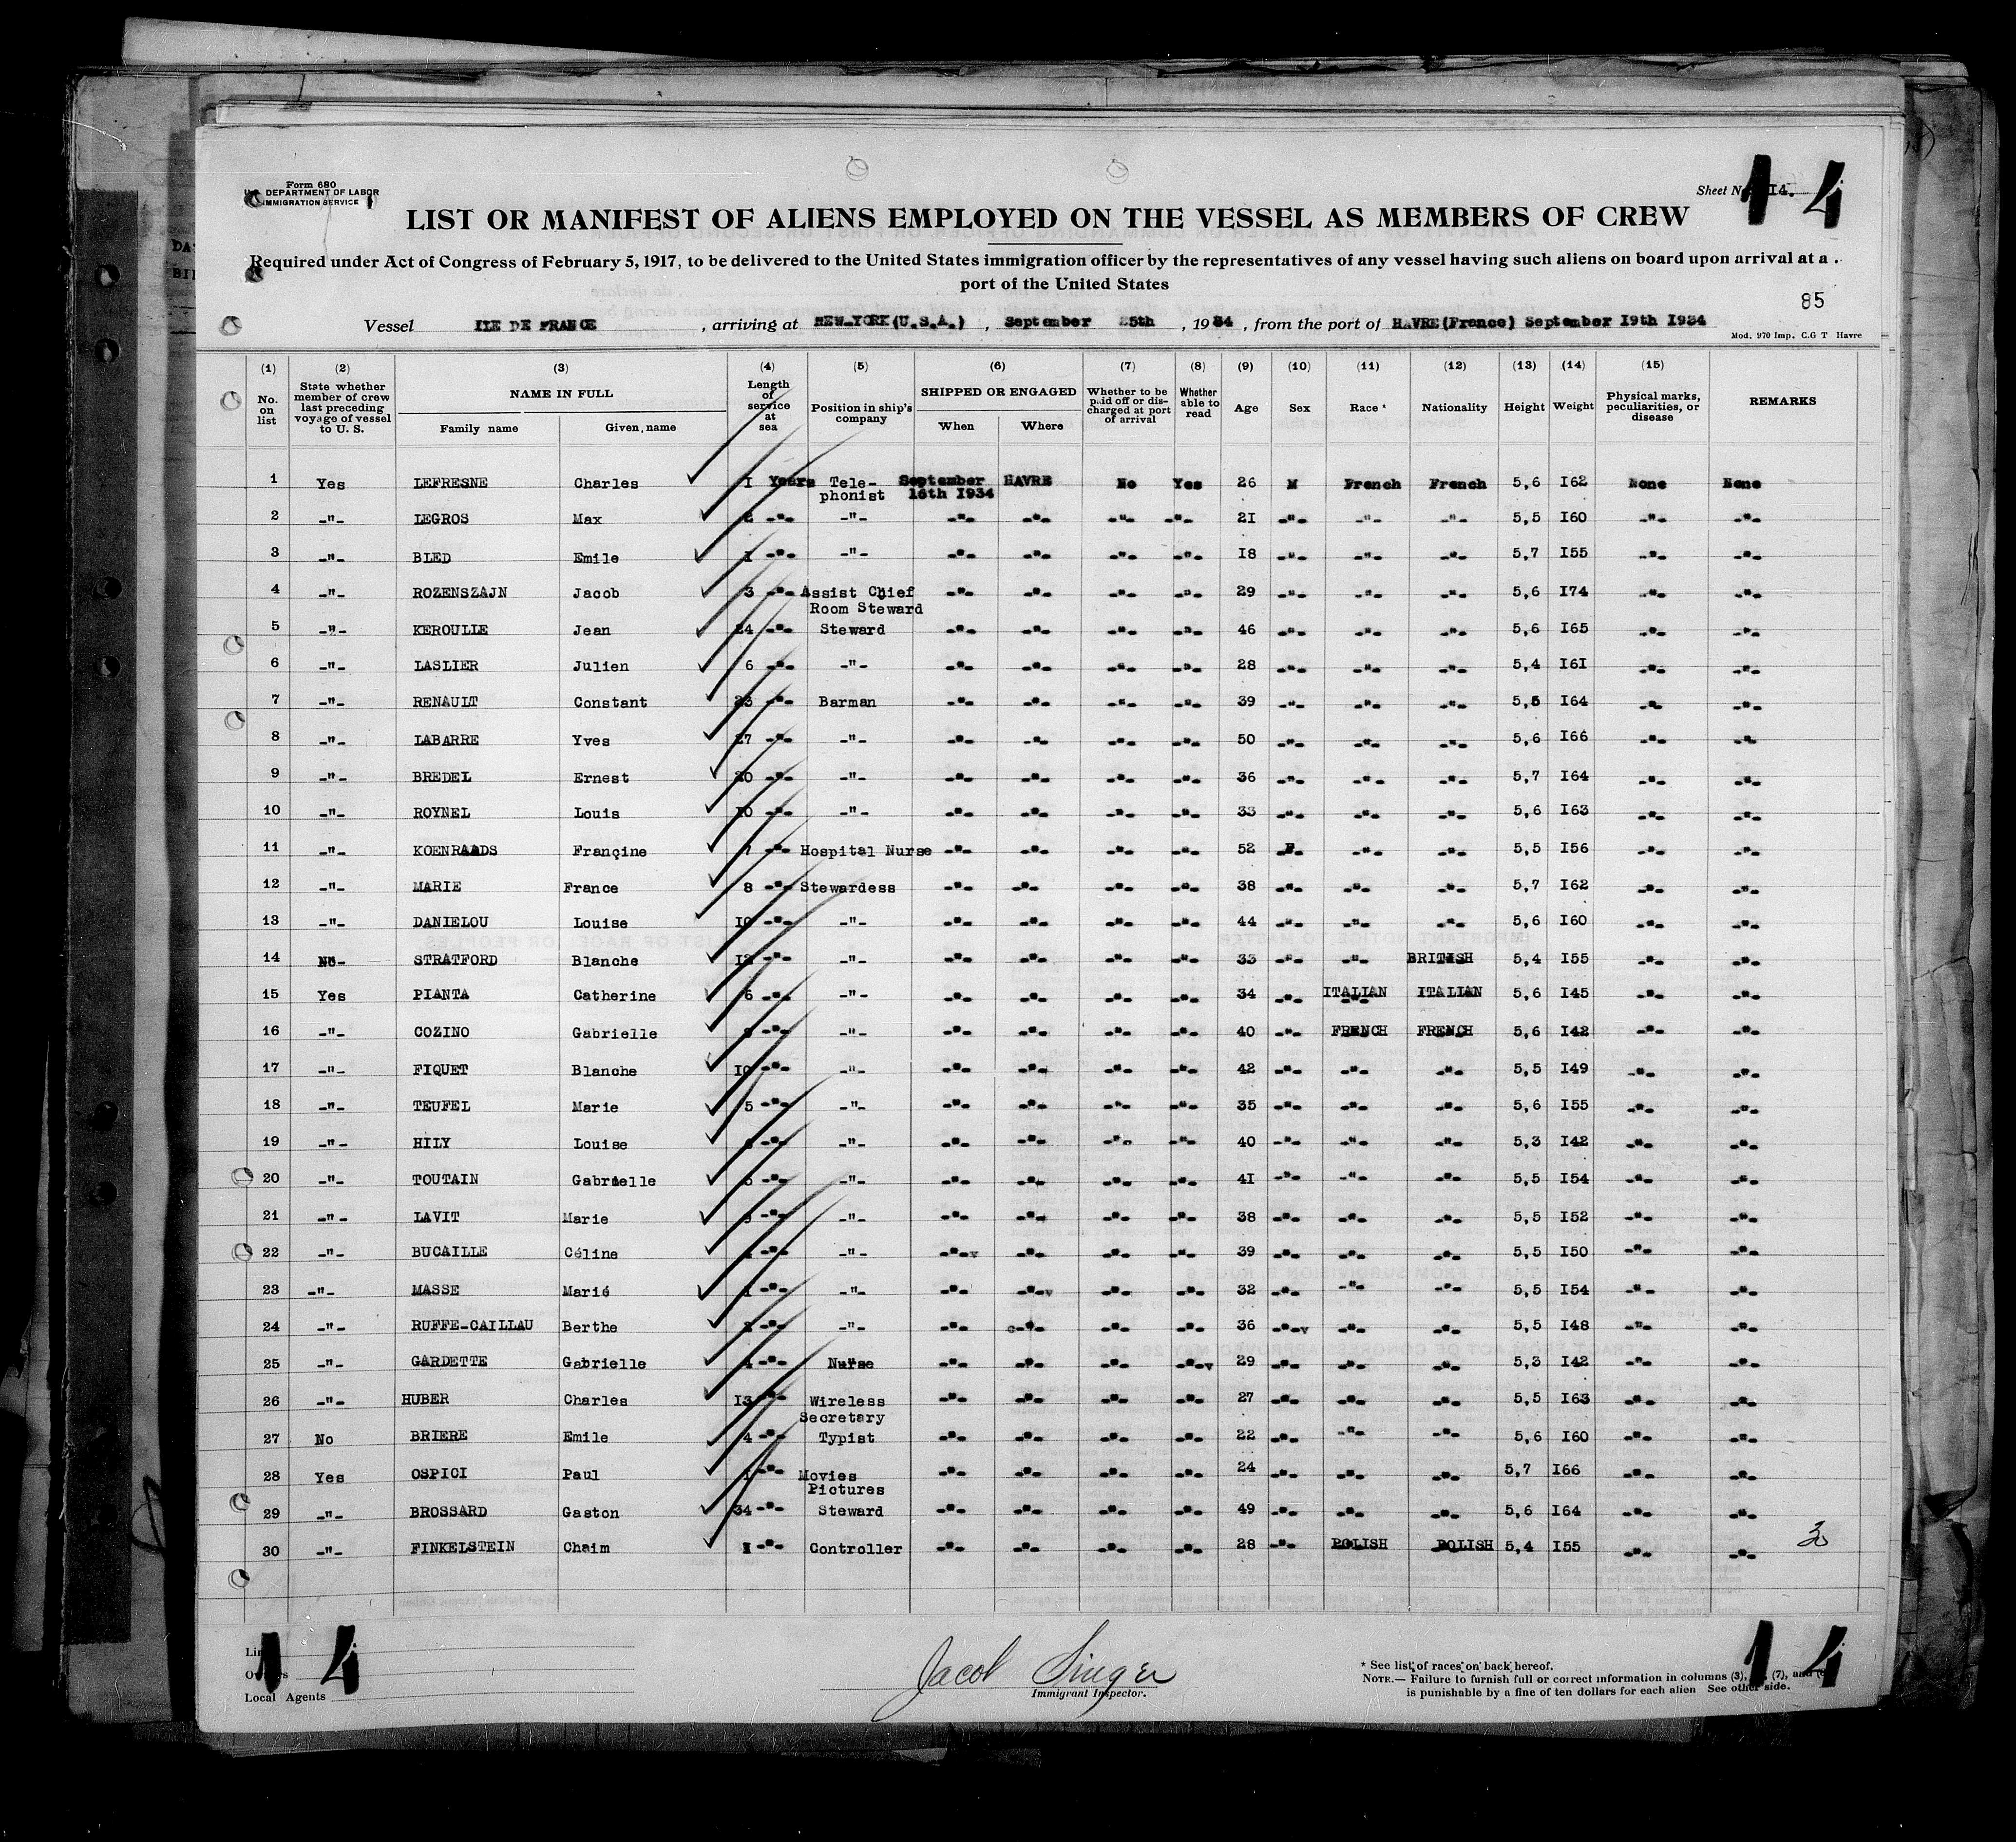 Form 680
U.S. DEPARTMENT OF LABOR
IMMIGRATION SERVICE
Sheet No. I4.
14
LIST OR MANIFEST OF ALIENS EMPLOYED ON THE VESSEL AS MEMBERS OF CREW
Required under Act of Congress of February 5, 1917, to be delivered to the United States immigration officer by the representatives of any vessel having such aliens on board upon arrival at a
port of the United States
85
Vessel ILE DE FRANCE , arriving at NEW-YORK(U.S.A.) , September 25th , 1934 , from the port of HAVRE(France) September I9th I934
Mod. 970 Imp. C.G T Havre
(1) (2) (3) (4) (5) (6) (7) (8) (9) (10) (11) (12) (13) (14) (15)
No. on list State whether member of crew last preceding voyage of vessel to U. S. NAME IN FULL Family name Given name Length of service at sea Position in ship's company SHIPPED OR ENGAGED When Where Whether to be paid off or discharged at port of arrival Whether able to read Age Sex Race * Nationality Height Weight Physical marks, peculiarities, or disease REMARKS
1 Yes LEFRESNE Charles I Years Tele-phonist September 16th I934 HAVRE No Yes 26 M French French 5,6 I62 None None
2 -"- LEGROS Max 2 -"- -"- -"- -"- -"- -"- 2I -"- -"- -"- 5,5 I60 -"- -"-
3 -"- BLED Emile I -"- -"- -"- -"- -"- -"- I8 -"- -"- -"- 5,7 I55 -"- -"-
4 -"- ROZENSZAJN Jacob 3 -"- Assist Chief Room Steward -"- -"- -"- -"- 29 -"- -"- -"- 5,6 I74 -"- -"-
5 -"- KEROULLE Jean 24 -"- Steward -"- -"- -"- -"- 46 -"- -"- -"- 5,6 I65 -"- -"-
6 -"- LASLIER Julien 6 -"- -"- -"- -"- -"- -"- 28 -"- -"- -"- 5,4 I6I -"- -"-
7 -"- RENAULT Constant 23 -"- Barman -"- -"- -"- -"- 39 -"- -"- -"- 5,5 I64 -"- -"-
8 -"- LABARRE Yves 27 -"- -"- -"- -"- -"- -"- 50 -"- -"- -"- 5,6 I66 -"- -"-
9 -"- BREDEL Ernest 20 -"- -"- -"- -"- -"- -"- 36 -"- -"- -"- 5,7 I64 -"- -"-
10 -"- ROYNEL Louis I0 -"- -"- -"- -"- -"- -"- 33 -"- -"- -"- 5,6 I63 -"- -"-
11 -"- KOENRAADS Françine 7 -"- Hospital Nurse -"- -"- -"- -"- 52 F -"- -"- 5,5 I56 -"- -"-
12 -"- MARIE France 8 -"- Stewardess -"- -"- -"- -"- 38 -"- -"- -"- 5,7 I62 -"- -"-
13 -"- DANIELOU Louise I0 -"- -"- -"- -"- -"- -"- 44 -"- -"- -"- 5,6 I60 -"- -"-
14 No STRATFORD Blanche I2 -"- -"- -"- -"- -"- -"- 33 -"- -"- BRITISH 5,4 I55 -"- -"-
15 Yes PIANTA Catherine 6 -"- -"- -"- -"- -"- -"- 34 -"- ITALIAN ITALIAN 5,6 I45 -"- -"-
16 -"- COZINO Gabrielle -"- -"- -"- -"- -"- -"- 40 -"- FRENCH FRENCH 5,6 I42 -"- -"-
17 -"- FIQUET Blanche I0 -"- -"- -"- -"- -"- -"- 42 -"- -"- -"- 5,5 I49 -"- -"-
18 -"- TEUFEL Marie 5 -"- -"- -"- -"- -"- -"- 35 -"- -"- -"- 5,6 I55 -"- -"-
19 -"- HILY Louise -"- -"- -"- -"- -"- -"- 40 -"- -"- -"- 5,3 I42 -"- -"-
20 -"- TOUTAIN Gabrielle -"- -"- -"- -"- -"- -"- 4I -"- -"- -"- 5,5 I54 -"- -"-
21 -"- LAVIT Marie -"- -"- -"- -"- -"- -"- 38 -"- -"- -"- 5,5 I52 -"- -"-
22 -"- BUCAILLE Céline -"- -"- -"- -"- -"- -"- 39 -"- -"- -"- 5,5 I50 -"- -"-
23 -"- MASSE Marié I -"- -"- -"- -"- -"- -"- 32 -"- -"- -"- 5,5 I54 -"- -"-
24 -"- RUFFE-CAILLAU Berthe -"- -"- -"- -"- -"- -"- 36 -"- -"- -"- 5,5 I48 -"- -"-
25 -"- GARDETTE Gabrielle -"- Nurse -"- -"- -"- -"- 29 -"- -"- -"- 5,3 I42 -"- -"-
26 -"- HUBER Charles I3 -"- Wireless -"- -"- -"- -"- 27 -"- -"- -"- 5,5 I63 -"- -"-
27 No BRIERE Emile 4 -"- Secretary Typist -"- -"- -"- -"- 22 -"- -"- -"- 5,6 I60 -"- -"-
28 Yes OSPICI Paul I -"- Movies Pictures -"- -"- -"- -"- 24 -"- -"- -"- 5,7 I66 -"- -"-
29 -"- BROSSARD Gaston 34 -"- Steward -"- -"- -"- -"- 49 -"- -"- -"- 5,6 I64 -"- -"-
30 -"- FINKELSTEIN Chaim I -"- Controller -"- -"- -"- -"- 28 -"- POLISH POLISH 5,4 I55 -"- -"-
30
14
Line
Owners
Local Agents
Jacob Singer
Immigrant Inspector.
* See list of races on back hereof.
NOTE.— Failure to furnish full or correct information in columns (3), (7), and
is punishable by a fine of ten dollars for each alien See other side.
14